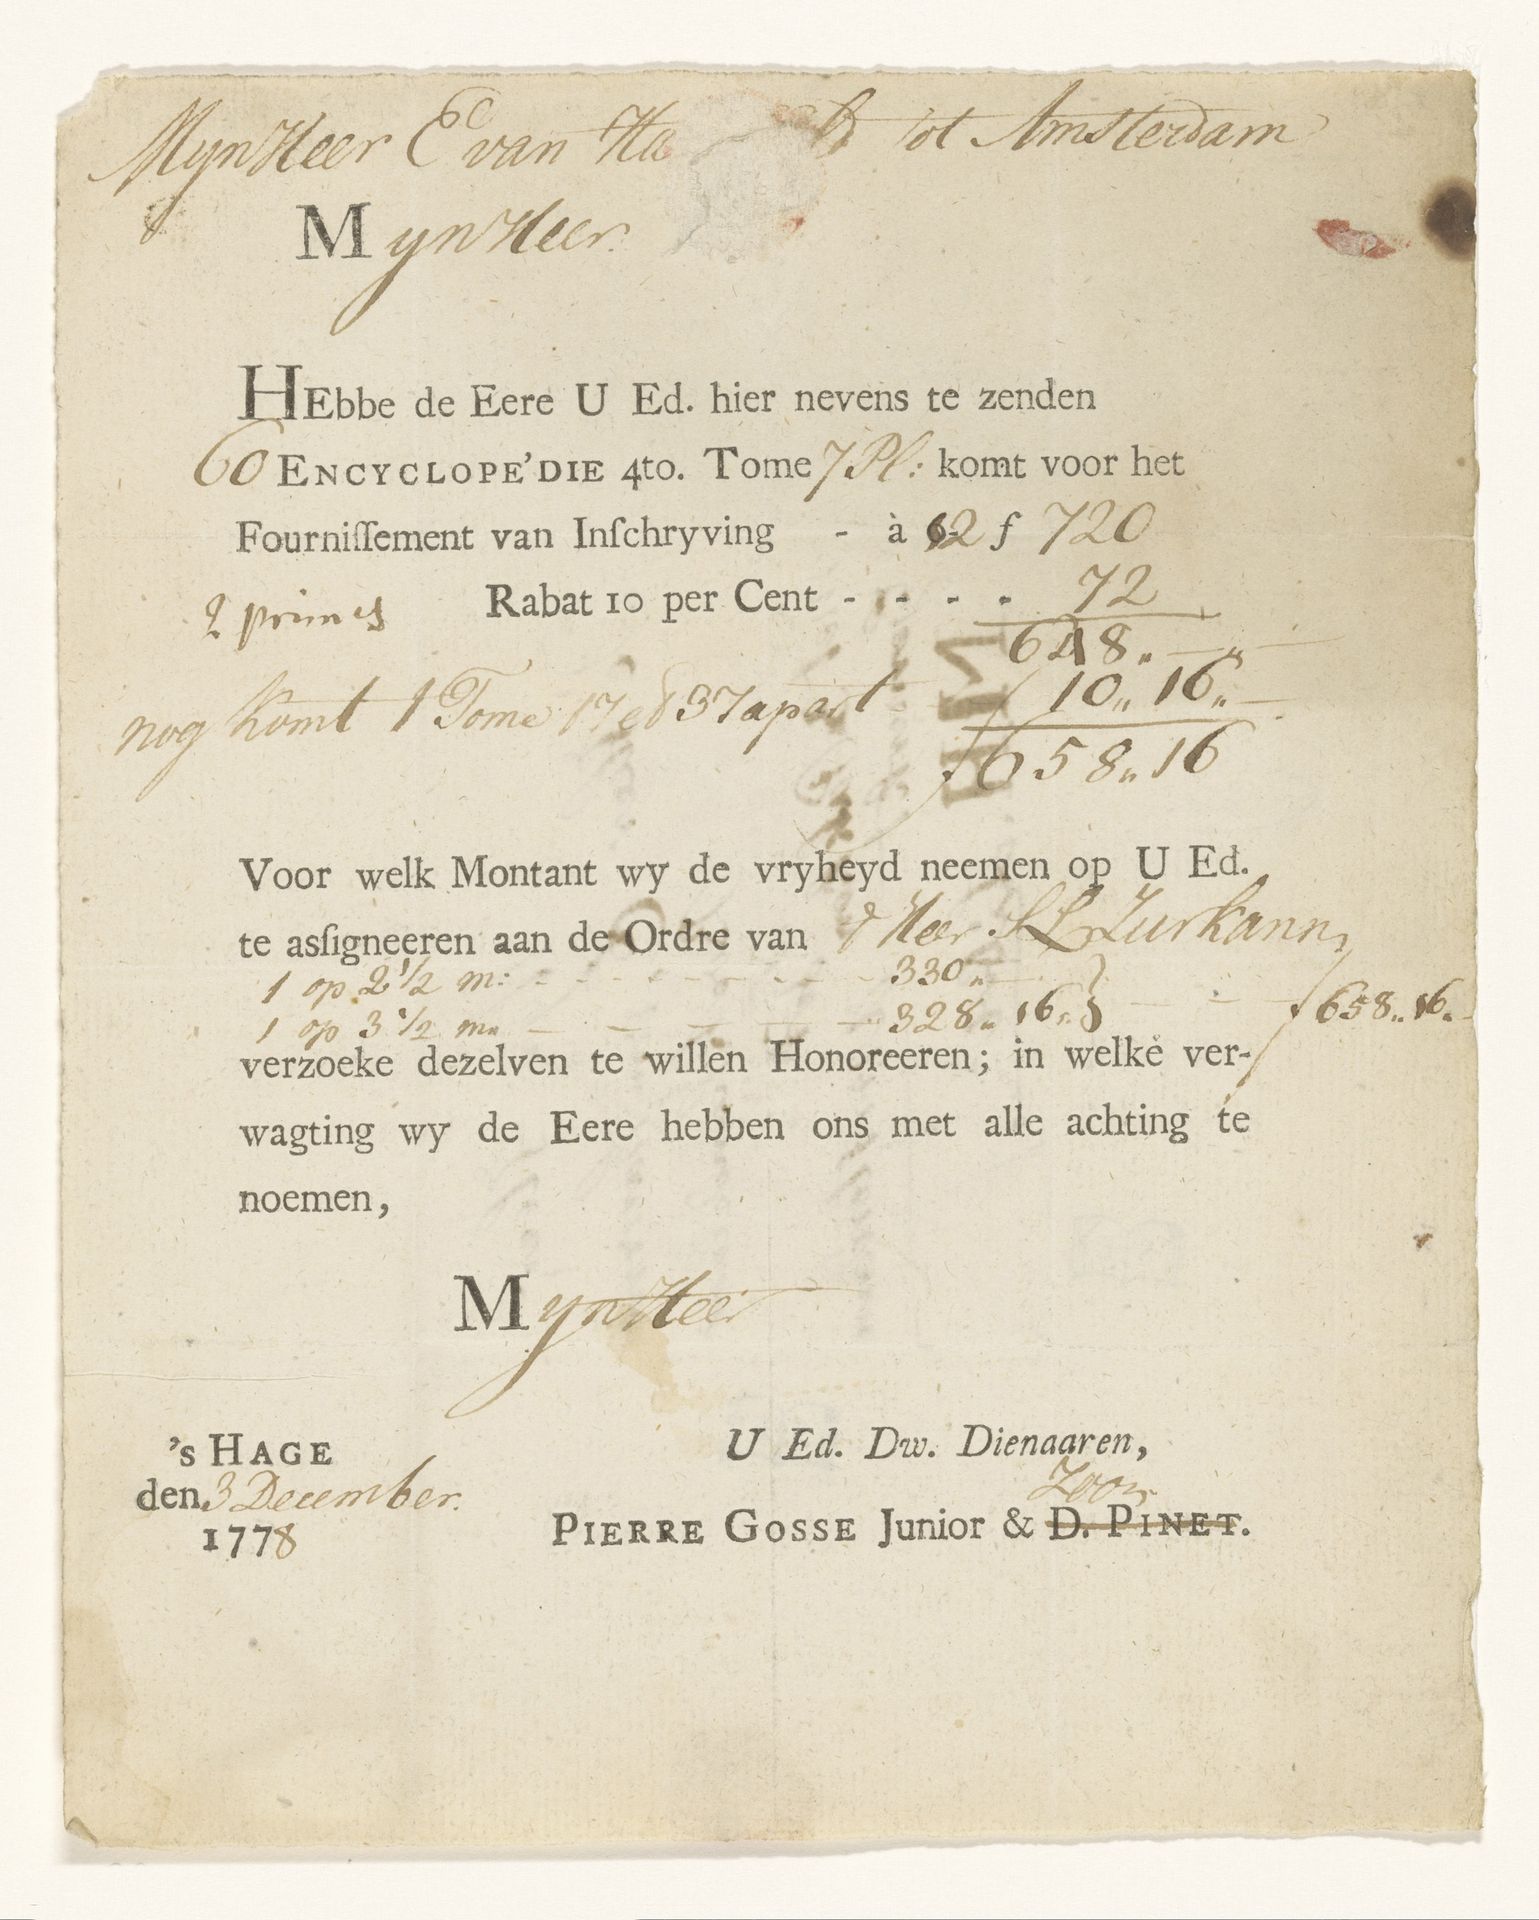 MynHeer E van Ha tot Amsterdam
MynHeer.
HEbbe de Eere U Ed. hier nevens te zenden
60 ENCYCLOPE'DIE 4to. Tome 7 Pl: komt voor het
Fourniſſement van Inſchryving - à 12 f 720
Rabat 10 per Cent - - - - 72
2 primes
648.. — ..
nog komt 1 Tome 17 ed 37 apart f 10.. 16.. —
f 658.. 16
Voor welk Montant wy de vryheyd neemen op U Ed.
te aſſigneeren aan de Ordre van d Heer Zurkann,
1 op 2 1/2 m: - - - - - - - - 330.. —
1 op 3 1/2 m.. — — — — — 328.. 16.. } — - — f 658.. 16..
verzoeke dezelven te willen Honoreeren; in welke ver-
wagting wy de Eere hebben ons met alle achting te
noemen,
MynHeer
's HAGE
den 3 December.
1778
U Ed. Dw. Dienaaren,
Zoon
PIERRE GOSSE Junior & D. PINET.